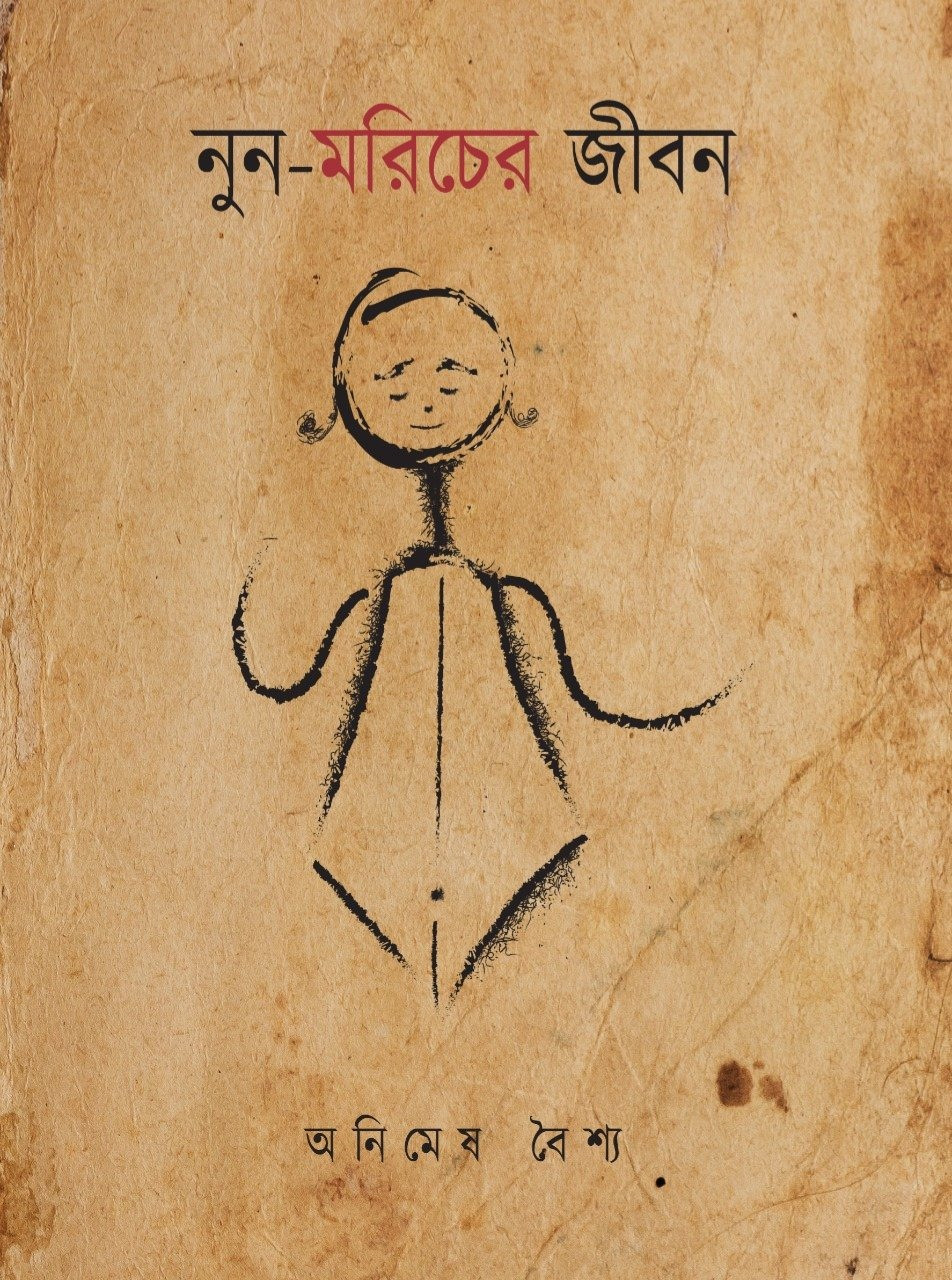 নুন-মরিচের জীবন
অনিমেষ বৈশ্য